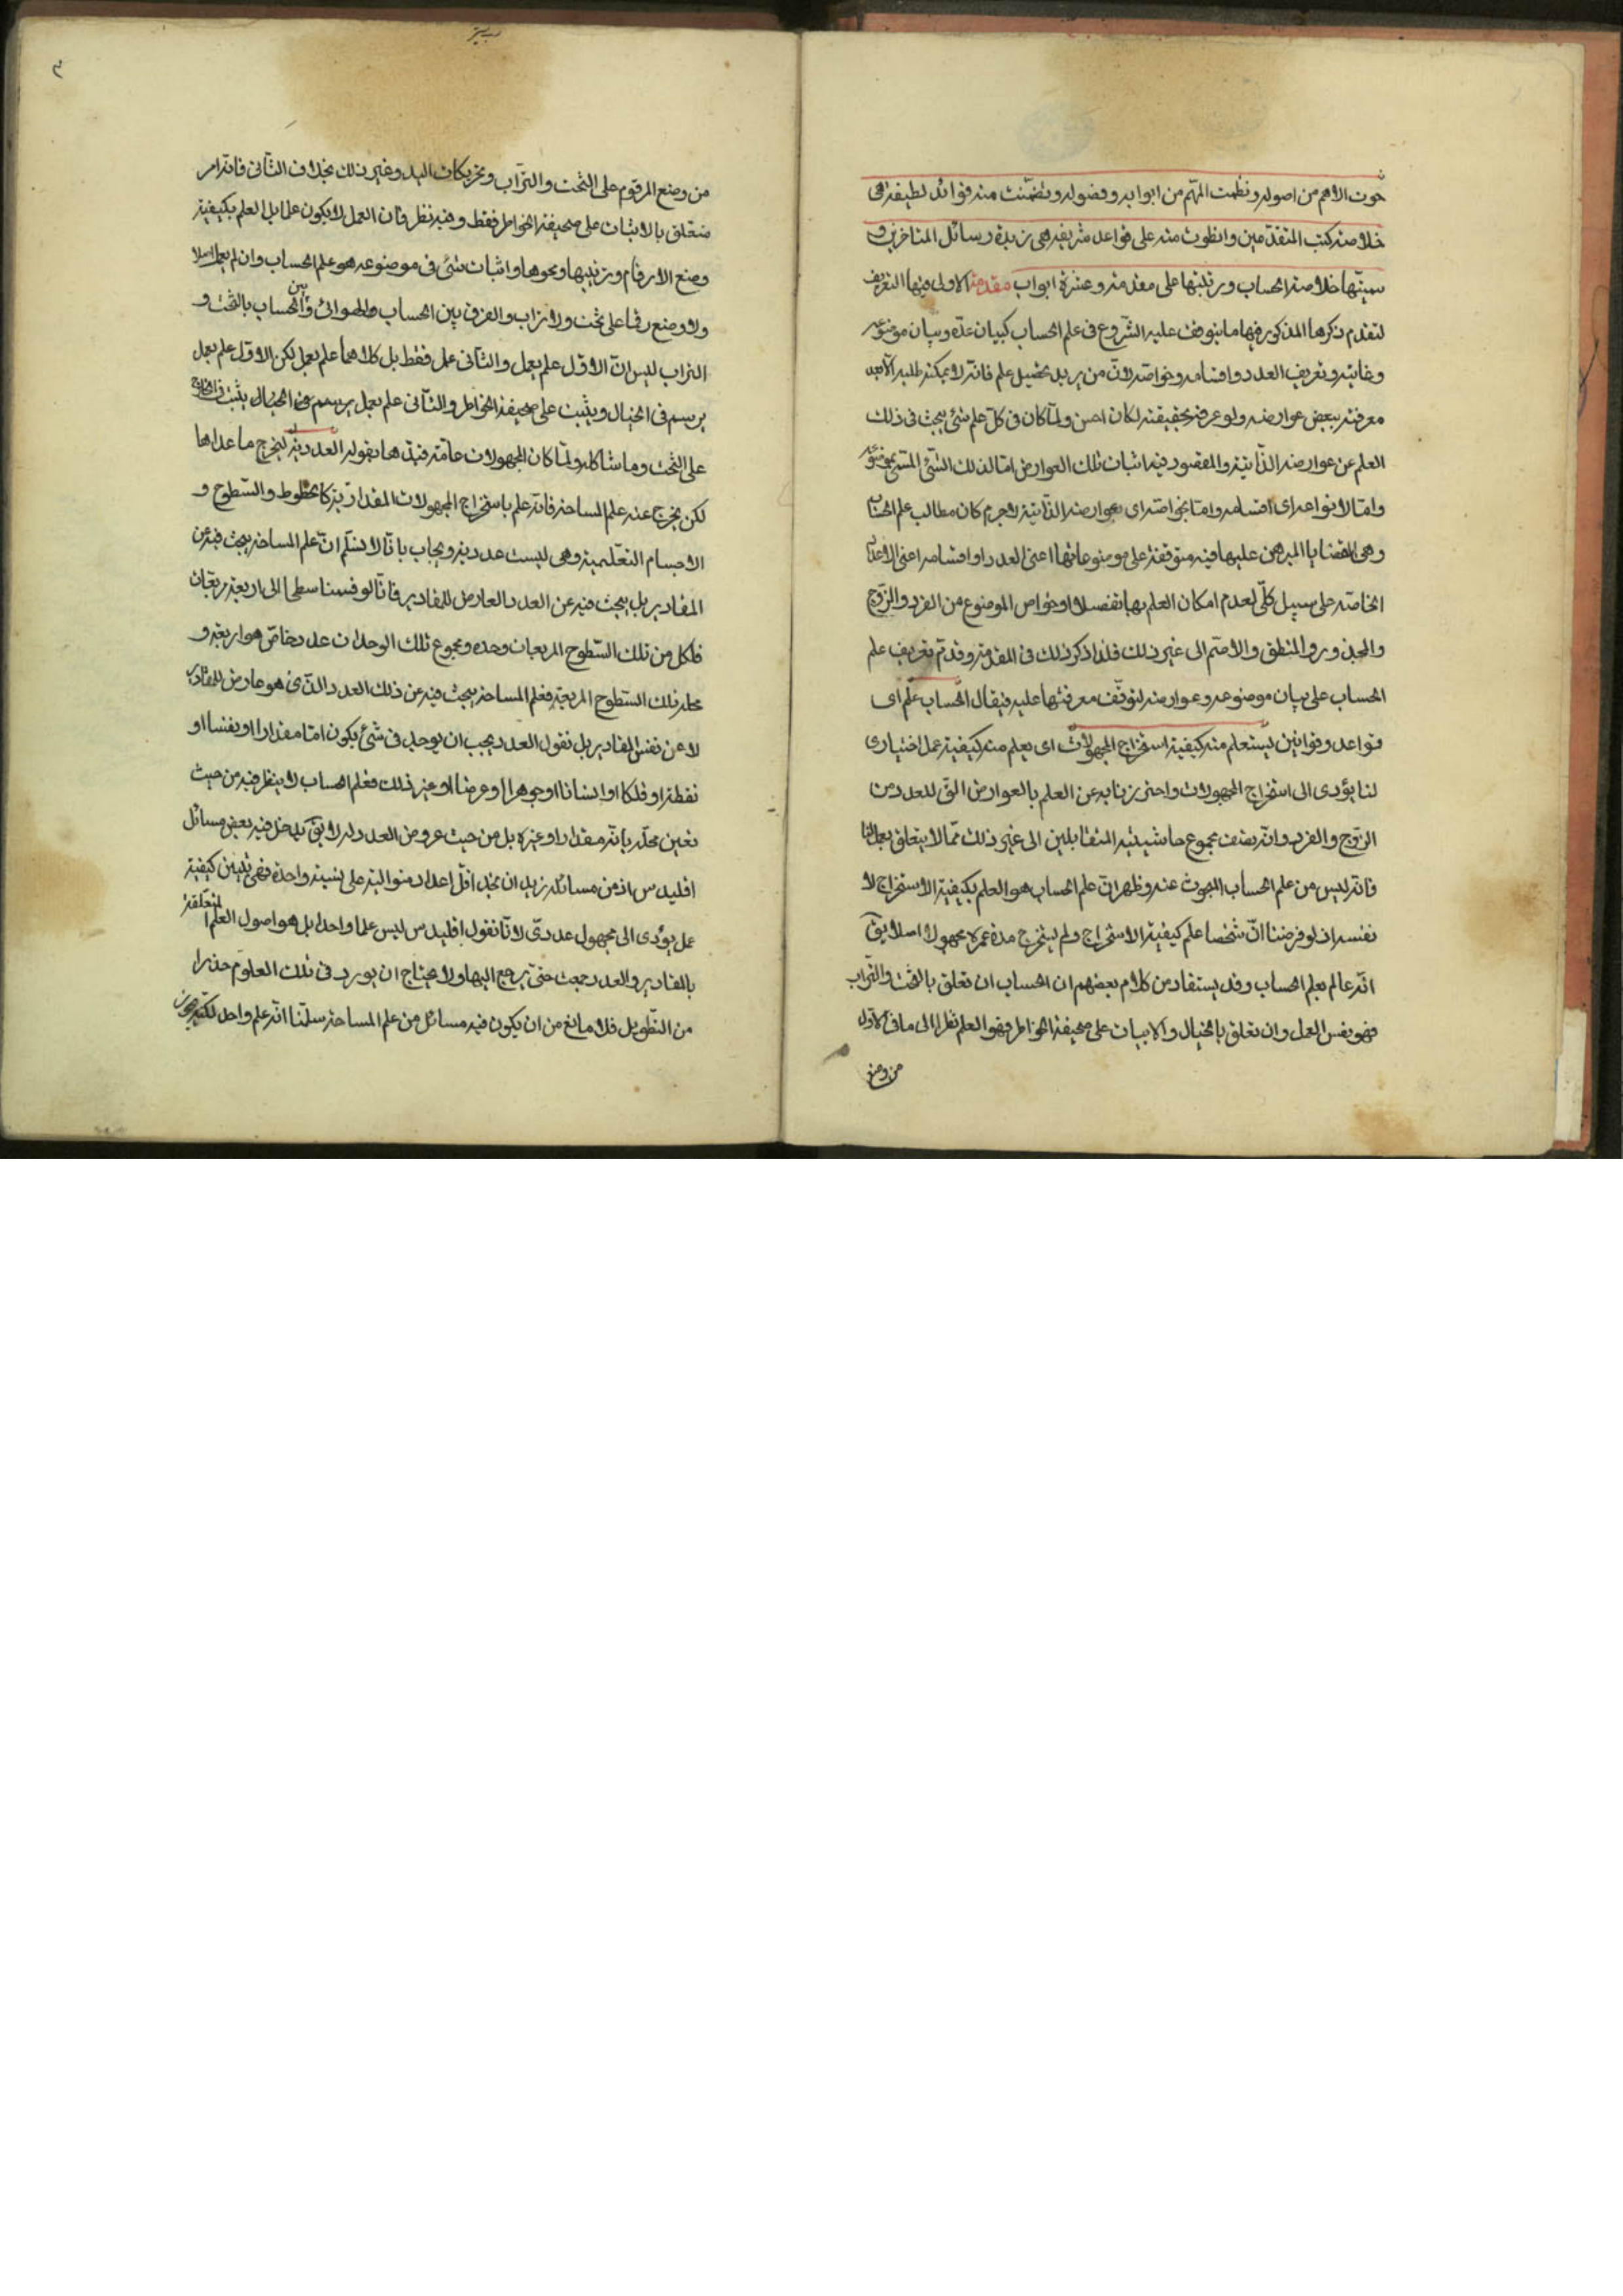 حوت الاهم من اصوله ونظمت المهم من ابوابه وفصوله وتضمنت منه فوائد لطيفة هى
خلاصة كتب المتقدمين وانطوت منه على قواعد شريفة هى زبدة رسائل المتاخرين و
سميتها خلاصة الحساب ورتبتها على مقدمة وعشرة ابواب مقدمة الاولى فيها التعريف
لتقدم ذكرها المذكور فيها ما يتوقف عليه الشروع فى علم الحساب كبيان حده وبيان موضوعه
وغايته وتعريف العدد واقسامه وخواصه لان من يريد تحصيل علم فانه لا يمكنه طلبه الا بعد
معرفته ببعض عوارضه ولو عرفه بحقيقته لكان احسن ولما كان فى كل علم شئ يبحث فى ذلك
العلم عن عوارضه الذاتية والمقصود فيه اثبات تلك العوارض اما لذلك الشئ المسمى بموضوعه
واما لانواعه اى اقسامه واما بخواصه اى بعوارضه الذاتية لاجرم كان مطالب علم الحساب
وهى القضايا المبرهن عليها فيه متوقفة على موضوعاتها اعنى العدد او اقسامه اعنى الاعداد
الخاصة على سبيل كلى لعدم امكان العلم بها تفصيلا او خواص الموضوع من الفرد والزوج
والمجذور والمنطق والاصم الى غير ذلك فلذا ذكر ذلك فى المقدمة وقدم تعريف علم
الحساب على بيان موضوعه وعوارضه لتوقف معرفتها عليه فيقال الحساب علم اى
قواعد وقوانين يستعلم منه كيفية استخراج المجهولات اى يعلم منه كيفية عمل اختيارى
لنا يؤدى الى استخراج المجهولات واحترزنا به عن العلم بالعوارض التى للعدد من
الزوج والفرد وانه نصف مجموع حاشيتيه المتقابلين الى غير ذلك مما لا يتعلق بعملنا
فانه ليس من علم الحساب المبحوث عنه وظهر ان علم الحساب هو العلم بكيفية الاستخراج لا
نفسه اذ لو فرضنا ان شخصا علم كيفية الاستخراج ولم يستخرج مدة عمره مجهولا اصلا يق
انه عالم بعلم الحساب وقد يستفاد من كلام بعضهم ان الحساب ان تعلق بالتخت والتراب
فهو نفس العمل وان تعلق بالخيال والاثبات على صحيفة الخواطر فهو العلم نظرا الى ما فى الاول
من وضع
من وضع المرقوم على التخت والتراب وتحريكات اليد وغير ذلك بخلاف الثانى فانه امر
متعلق بالاثبات على صحيفة الخواطر فقط وفيه نظر فان العمل لا يكون علما بل العلم بكيفية
وضع الارقام وترتيبها ومحوها واثبات شئ فى موضوعه هو علم الحساب وان لم يعمل اصلا
ولا وضع رقما على تخت ولا تراب والفرق بين الحساب الهوائى وبين الحساب بالتخت و
التراب ليس ان الاول علم بعمل والثانى عمل فقط بل كلاهما علم بعمل لكن الاول علم بعمل
يرسم فى الخيال ويثبت على صحيفة الخواطر والثانى علم بعمل يرسم فى الخيال يثبت فى الخارج
على التخت وما شاكله ولما كان المجهولات عامة قيدها بقوله العددية ليخرج ما عداها
لكن يخرج عنه علم المساحة فانه علم باستخراج المجهولات المقدارية كالخطوط والسطوح و
الاجسام التعليمية وهى ليست عددية ويجاب بانا لا نسلم ان علم المساحة يبحث فيه عن
المقادير بل يبحث فيه عن العدد العارض للمقادير فانا لو قسمنا سطحا الى اربعة مربعات
فلكل من تلك السطوح المربعات وحدة ومجموع تلك الوحدات عدد خاص هو اربعة و
محله تلك السطوح المربعة فعلم المساحة يبحث فيه عن ذلك العدد الذى هو عارض للمقادير
لا عن نفس المقادير بل نقول العدد يجب ان يوجد فى شئ يكون اما مقدارا او نفسا او
نقطة او فلكا او انسانا او جوهرا او عرضا او غير ذلك فعلم الحساب لا ينظر فيه من حيث
تعين محله بانه مقدار او غيره بل من حيث عروض العدد له لا يق يدخل فيه بعض مسائل
اقليدس اذ من مسائله نريد ان نجد اقل اعداد متوالية على نسبة واحدة فهى تبيين كيفية
عمل يؤدى الى مجهول عددى لانا نقول اقليدس ليس علما واحدا بل هو اصول العلم المتعلقة
بالمقادير والعدد جمعت حتى يرجع اليها ولا يحتاج ان يورد فى تلك العلوم حذرا
من التطويل فلا مانع من ان يكون فيه مسائل من علم المساحة سلمنا انه علم واحد لكنه